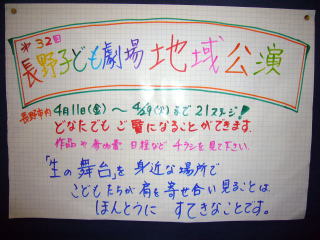 *32回
長野子ども劇場 地域公演
長野市内 4月11日(金)〜4/29(火)まで21ステージ!
どなたでも ご覧になることができます.
作品や 日程など チラシを見て下さい.
「生の舞台」を 身近な場所で
こどもたちが 肩を寄せ合い 見ることは
ほんとうに すてきなことです。